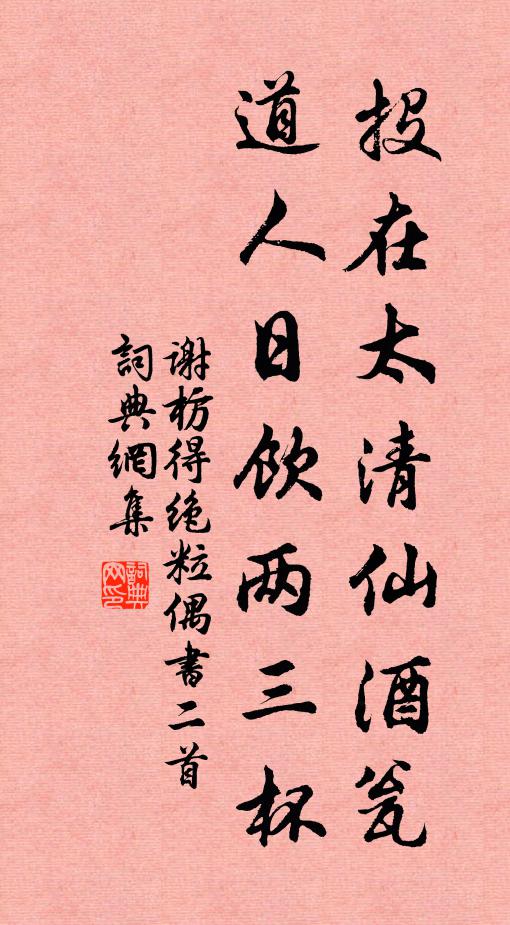 投在太清仙酒瓮
道人日飲两三杯
谢枋得绝粒偶書二首
詞典網集
詞典网印